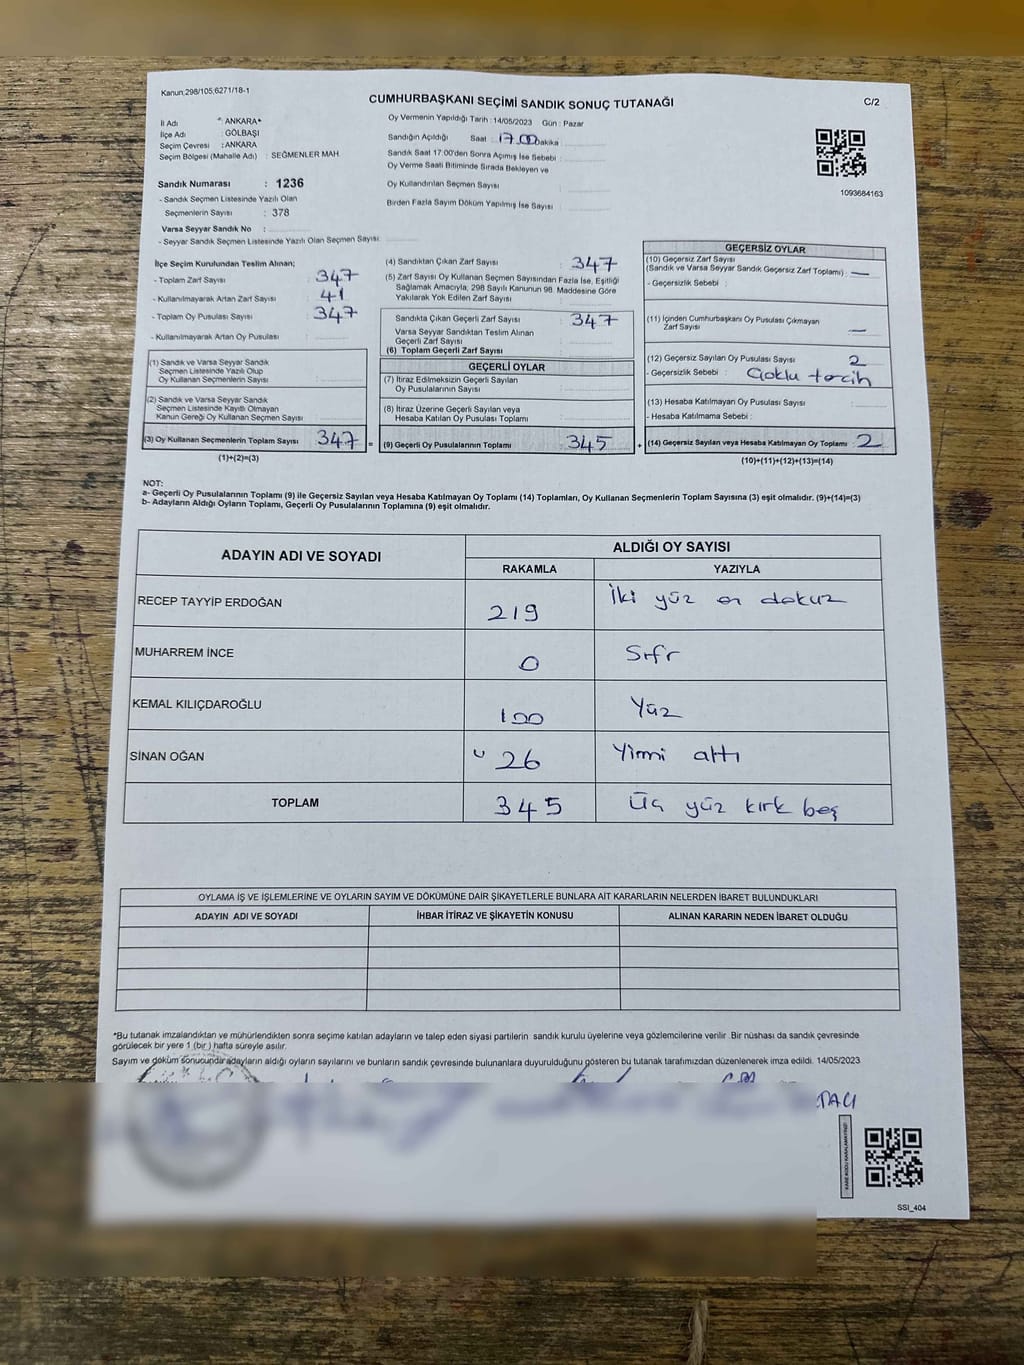 Kanun;298/105,6271/18-1
CUMHURBAŞKANI SEÇİMİ SANDIK SONUÇ TUTANAĞI
C/2
İl Adı : ANKARA*
İlçe Adı : GÖLBAŞI
Seçim Çevresi : ANKARA
Seçim Bölgesi (Mahalle Adı) : SEĞMENLER MAH
Oy Vermenin Yapıldığı Tarih : 14/05/2023 Gün : Pazar
Sandığın Açıldığı Saat : 17.00 Dakika :
Sandık Saat 17:00'den Sonra Açımış İse Sebebi :
Oy Verme Saati Bitiminde Sırada Bekleyen ve
Oy Kullandırılan Seçmen Sayısı :
Birden Fazla Sayım Döküm Yapılmış İse Sayısı :
1093684163
Sandık Numarası : 1236
- Sandık Seçmen Listesinde Yazılı Olan
Seçmenlerin Sayısı : 378
Varsa Seyyar Sandık No :
- Seyyar Sandık Seçmen Listesinde Yazılı Olan Seçmen Sayısı:
İlçe Seçim Kurulundan Teslim Alınan;
- Toplam Zarf Sayısı : 347
- Kullanılmayarak Artan Zarf Sayısı : 41
- Toplam Oy Pusulası Sayısı : 347
- Kullanılmayarak Artan Oy Pusulası :
(1) Sandık ve Varsa Seyyar Sandık
Seçmen Listesinde Yazılı Olup
Oy Kullanan Seçmenlerin Sayısı :
(2) Sandık ve Varsa Seyyar Sandık
Seçmen Listesinde Kayıtlı Olmayan
Kanun Gereği Oy Kullanan Seçmen Sayısı :
(3) Oy Kullanan Seçmenlerin Toplam Sayısı : 347 =
(1)+(2)=(3)
(4) Sandıktan Çıkan Zarf Sayısı : 347
(5) Zarf Sayısı Oy Kullanan Seçmen Sayısından Fazla İse, Eşitliği
Sağlamak Amacıyla, 298 Sayılı Kanunun 98. Maddesine Göre
Yakılarak Yok Edilen Zarf Sayısı :
Sandıkta Çıkan Geçerli Zarf Sayısı : 347
Varsa Seyyar Sandıktan Teslim Alınan
Geçerli Zarf Sayısı :
(6) Toplam Geçerli Zarf Sayısı :
GEÇERLİ OYLAR
(7) İtiraz Edilmeksizin Geçerli Sayılan
Oy Pusulalarının Sayısı :
(8) İtiraz Üzerine Geçerli Sayılan veya
Hesaba Katılan Oy Pusulası Toplamı :
(9) Geçerli Oy Pusulalarının Toplamı : 345 +
GEÇERSİZ OYLAR
(10) Geçersiz Zarf Sayısı
(Sandık ve Varsa Seyyar Sandık Geçersiz Zarf Toplamı) : —
- Geçersizlik Sebebi :
(11) İçinden Cumhurbaşkanı Oy Pusulası Çıkmayan
Zarf Sayısı : —
(12) Geçersiz Sayılan Oy Pusulası Sayısı : 2
- Geçersizlik Sebebi : Çoklu tercih
(13) Hesaba Katılmayan Oy Pusulası Sayısı :
- Hesaba Katılmama Sebebi :
(14) Geçersiz Sayılan veya Hesaba Katılmayan Oy Toplamı : 2
(10)+(11)+(12)+(13)=(14)
NOT:
a- Geçerli Oy Pusulalarının Toplamı (9) ile Geçersiz Sayılan veya Hesaba Katılmayan Oy Toplamı (14) Toplamları, Oy Kullanan Seçmenlerin Toplam Sayısına (3) eşit olmalıdır. (9)+(14)=(3)
b- Adayların Aldığı Oyların Toplamı, Geçerli Oy Pusulalarının Toplamına (9) eşit olmalıdır.
ADAYIN ADI VE SOYADI
ALDIĞI OY SAYISI
RAKAMLA YAZIYLA
RECEP TAYYİP ERDOĞAN 219 İki yüz on dokuz
MUHARREM İNCE 0 Sıfır
KEMAL KILIÇDAROĞLU 100 Yüz
SİNAN OĞAN 26 Yirmi altı
TOPLAM 345 Üç yüz kırk beş
OYLAMA İŞ VE İŞLEMLERİNE VE OYLARIN SAYIM VE DÖKÜMÜNE DAİR ŞİKAYETLERLE BUNLARA AİT KARARLARIN NELERDEN İBARET BULUNDUKLARI
ADAYIN ADI VE SOYADI İHBAR İTİRAZ VE ŞİKAYETİN KONUSU ALINAN KARARIN NEDEN İBARET OLDUĞU
*Bu tutanak imzalandıktan ve mühürlendikten sonra seçime katılan adayların ve talep eden siyasi partilerin sandık kurulu üyelerine veya gözlemcilerine verilir. Bir nüshası da sandık çevresinde
görülecek bir yere 1 (bir ) hafta süreyle asılır.
Sayım ve döküm sonucunda adayların aldığı oyların sayılarını ve bunların sandık çevresinde bulunanlara duyurulduğunu gösteren bu tutanak tarafımızdan düzenlenerek imza edildi. 14/05/2023
SSI_404